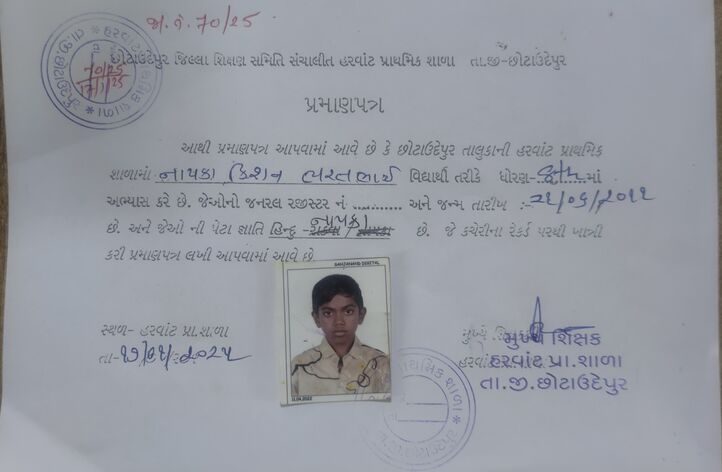 જા.નં. 70/25
છોટાઉદેપુર જિલ્લા શિક્ષણ સમિતિ સંચાલીત હરવાંટ પ્રાથમિક શાળા તા.જી-છોટાઉદેપુર
70/25
17/1/25
પ્રમાણપત્ર
આથી પ્રમાણપત્ર આપવામાં આવે છે કે છોટાઉદેપુર તાલુકાની હરવાંટ પ્રાથમિક
શાળામાં નાયકા કિશન ભરતભાઈ વિદ્યાર્થી તરીકે ધોરણ-.........માં
અભ્યાસ કરે છે. જેઓનો જનરલ રજીસ્ટર નં ........... અને જન્મ તારીખ :- ૨૨/૦૬/૨૦૧૧
છે. અને જેઓ ની પેટા જ્ઞાતિ હિન્દુ - નાયકા છે. જે કચેરીના રેકર્ડ પરથી ખાત્રી
કરી પ્રમાણપત્ર લખી આપવામાં આવે છે.
SAHJANAND DIGITAL
સ્થળ- હરવાંટ પ્રા.શાળા
તા-૧૭/૦૧/૨૦૨૫
મુખ્ય શિક્ષક
હરવાંટ પ્રા.શાળા
તા.જી.છોટાઉદેપુર
11.04.2022